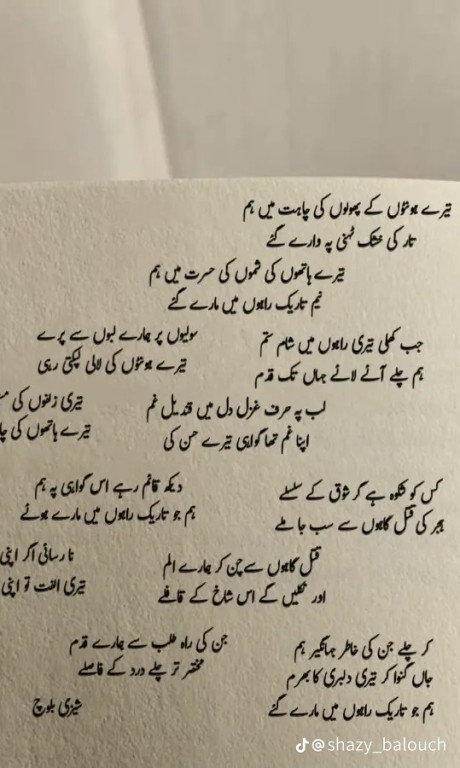 تیرے ہونٹوں کے پھولوں کی چاہت میں ہم
تار کی خشک ٹہنی پہ وارے گئے
تیرے ہاتھوں کی شموں کی حسرت میں ہم
نیم تاریک راہوں میں مارے گئے
سولیوں پر ہمارے لبوں سے پرے
تیرے ہونٹوں کی لالی لپکتی رہی
تیری زلفوں کی
تیرے ہاتھوں کی
جب کھلی تیری راہوں میں شام ستم
ہم چلے آئے لائے جہاں تک قدم
لب پہ حرف غزل دل میں قندیل غم
اپنا غم تھا گواہی تیرے حسن کی
دیکھ قائم رہے اس گواہی پہ ہم
ہم جو تاریک راہوں میں مارے ہوئے
نا رسائی اگر اپنی
تیری الفت تو اپنی
کس کو شکوہ ہے گر شوق کے سلسلے
ہجر کی قتل گاہوں سے سب جا ملے
قتل گاہوں سے چن کر ہمارے الم
اور نکلیں گے اس شاخ کے قافلے
جن کی راہ طلب سے ہمارے قدم
مختصر تر چلے درد کے فاصلے
کر چلے جن کی خاطر جہانگیر ہم
جاں گنوا کر تیری دلبری کا بھرم
ہم جو تاریک راہوں میں مارے گئے
شیزی بلوچ
@shazy_balouch